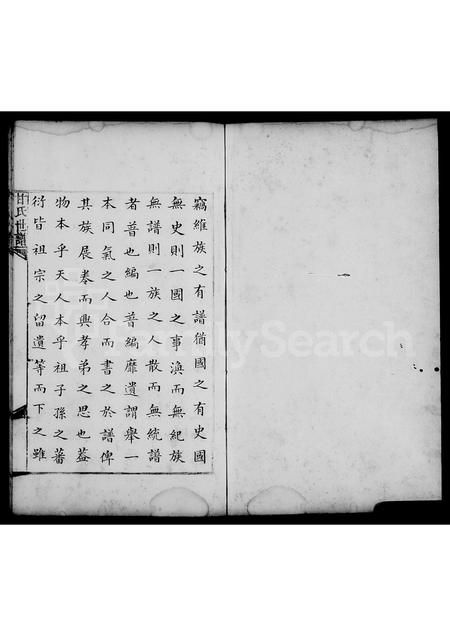 竊維族之有譜猶國之有史國
無史則一國之事渙而無紀族
無譜則一族之人散而無統譜
者普也編也普編靡遺謂舉一
本同氣之人合而書之於譜俾
其族展奏而興孝弟之思也葢
物本乎天人本乎祖子孫之蕃
衍皆祖宗之留遺等而下之雖
甘氏世譜
FamilySearch